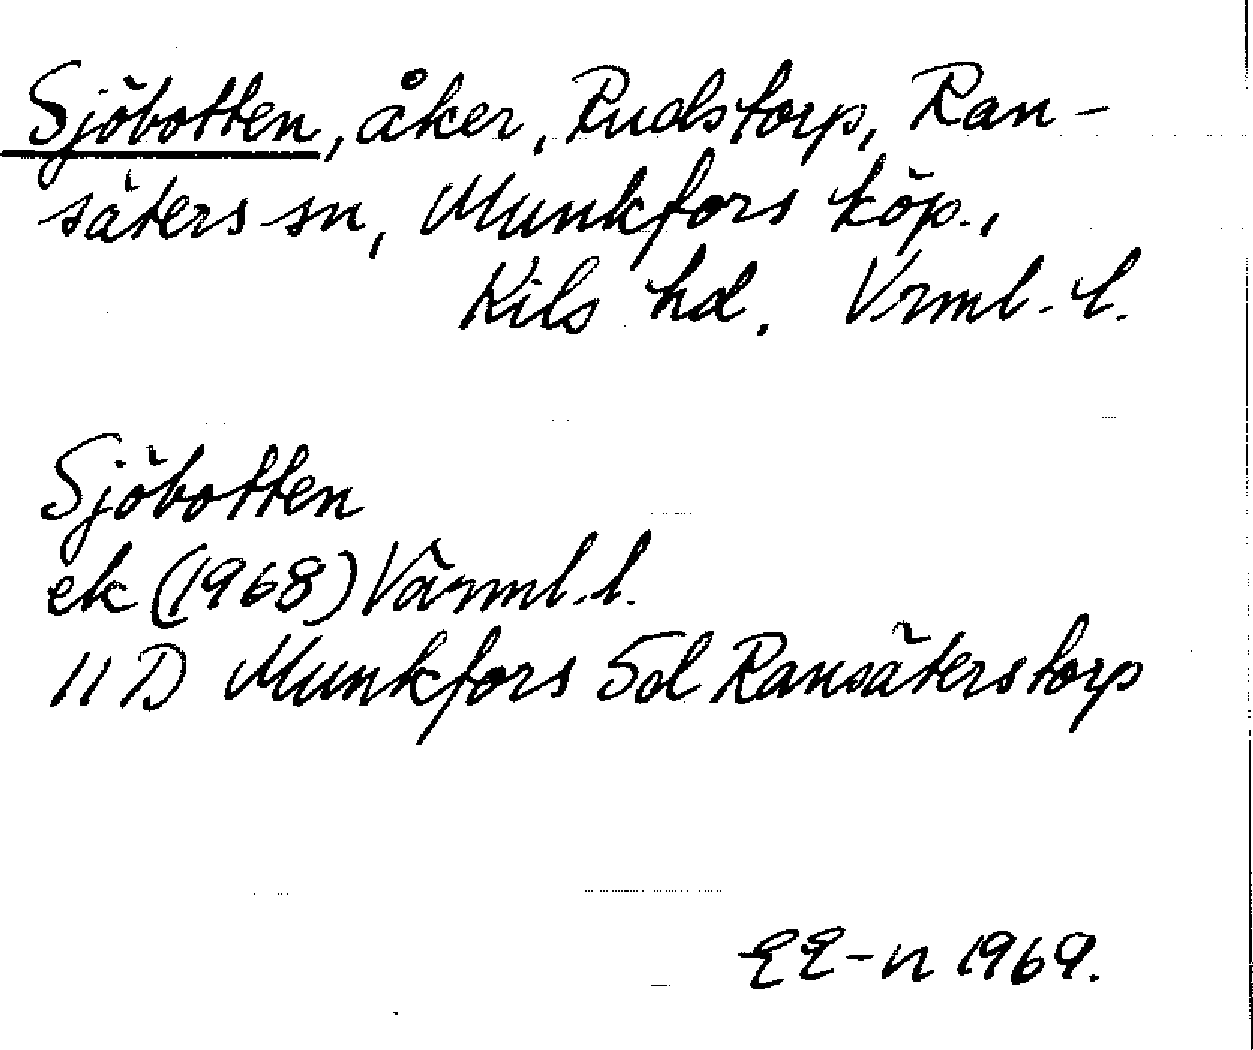 Sjöbotten, åker, Rudstorp, Ran-
säters sn, Munkfors köp.,
Kils hd. Vrml. l.
Sjöbotten
ek (1968) Värml. l.
11 D Munkfors 5d Ransäterstorp
EE-n 1969.